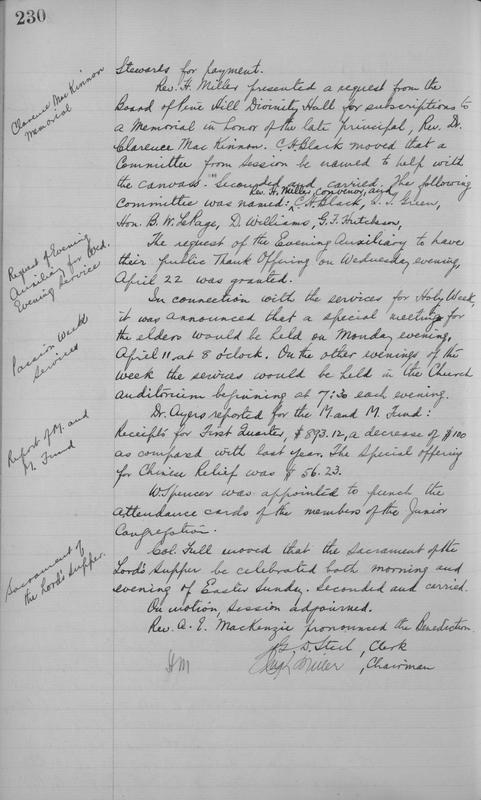 230
Stewards for payment.
Clarence MacKinnon
Memorial
Rev. H. Miller presented a request from the
Board of Pine Hill Divinity Hall for subscriptions to
a Memorial in honor of the late principal, Rev. Dr.
Clarence MacKinnon. C.H. Black moved that a
Committee from Session be named to help with
the canvass. Seconded and carried. The following
Rev. H. Miller, convenor, and
Committee was named: C.H. Black, S. T. Green,
Hon. B. W. LePage, D. Williams, G. F. Hutcheson,
Request of Evening
Auxiliary for Wed.
Evening Service
The request of the Evening Auxiliary to have
their public Thank Offering on Wednesday evening,
April 22 was granted.
Passion Week
Services
In connection with the services for Holy Week,
it was announced that a special meeting for
the elders would be held on Monday evening,
April 11, at 8 o'clock. On the other evenings of the
week the services would be held in the Church
auditorium beginning at 7:30 each evening.
Report of M. and
M. Fund
Dr. Ayers reported for the M. and M. Fund:
Receipts for First Quarter, $893.12, a decrease of $100
as compared with last year. The special offering
for Chinese Relief was $56.23.
W. Spencer was appointed to punch the
attendance cards of the members of the Junior
Congregation.
Sacrament of
the Lord's Supper.
Col. Full moved that the Sacrament of the
Lord's Supper be celebrated both morning and
evening of Easter Sunday. Seconded and carried.
On motion, Session adjourned.
Rev. A. E. MacKenzie pronounced the Benediction.
D. Steel, Clerk
HM
Hugh Miller, Chairman